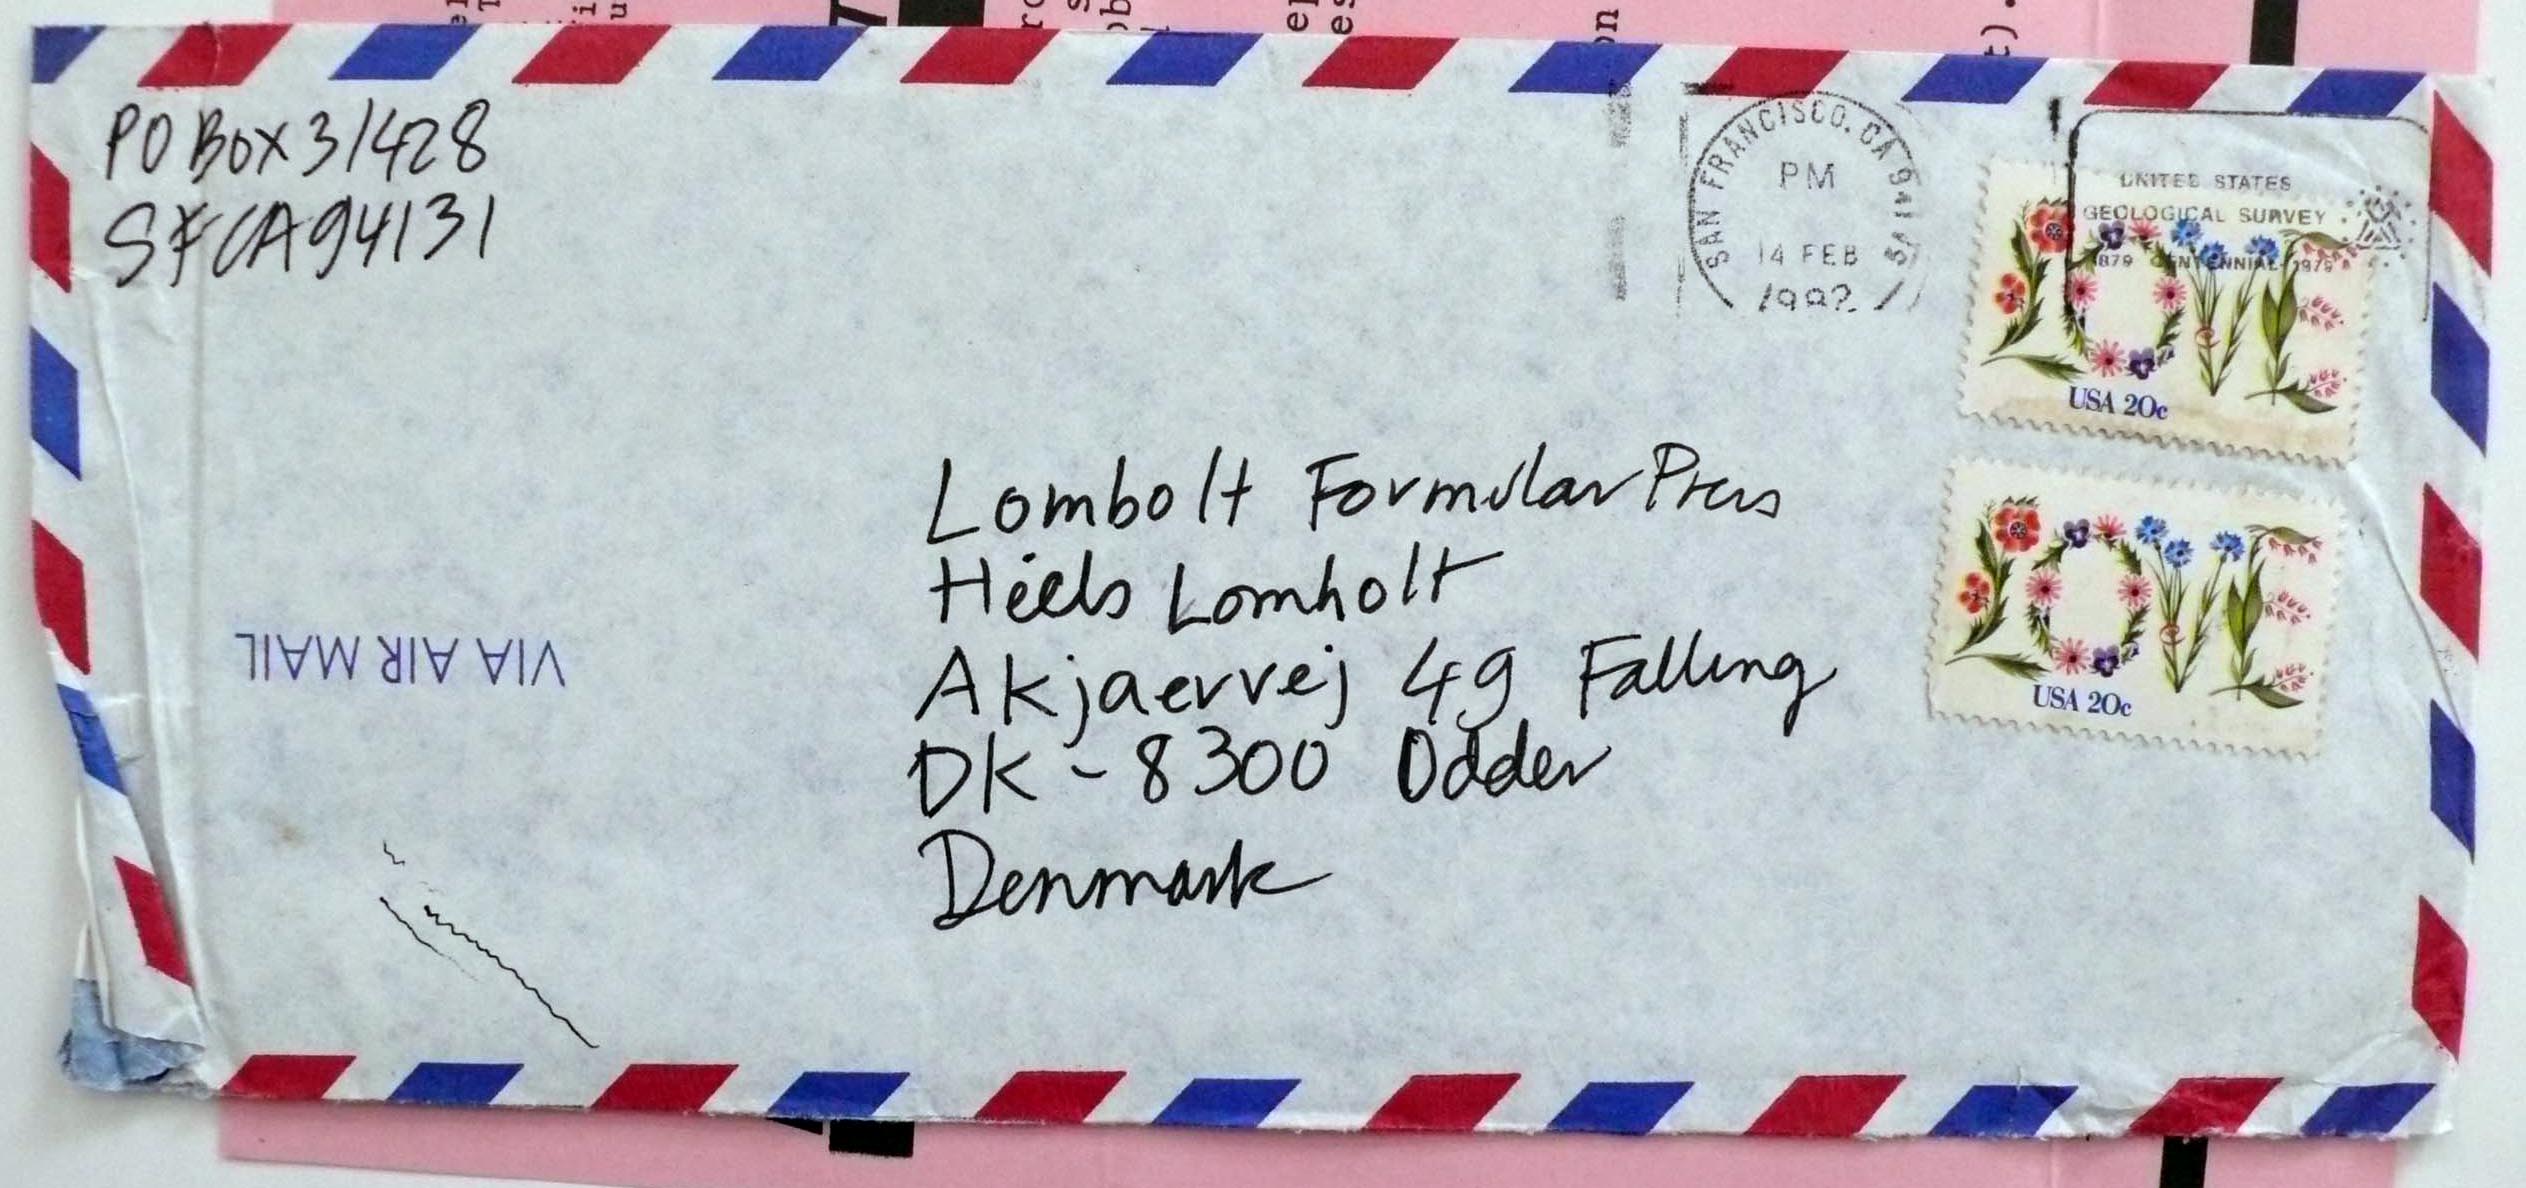 PO Box 31428
SF CA 94131
SAN FRANCISCO, CA 941
PM
14 FEB
1982
UNITED STATES
GEOLOGICAL SURVEY
1879 CENTENNIAL 1979
LOVE
USA 20c
LOVE
USA 20c
Lombolt Formular Press
Niels Lomholt
Akjaervej 49 Falling
DK - 8300 Odder
Denmark
VIA AIR MAIL